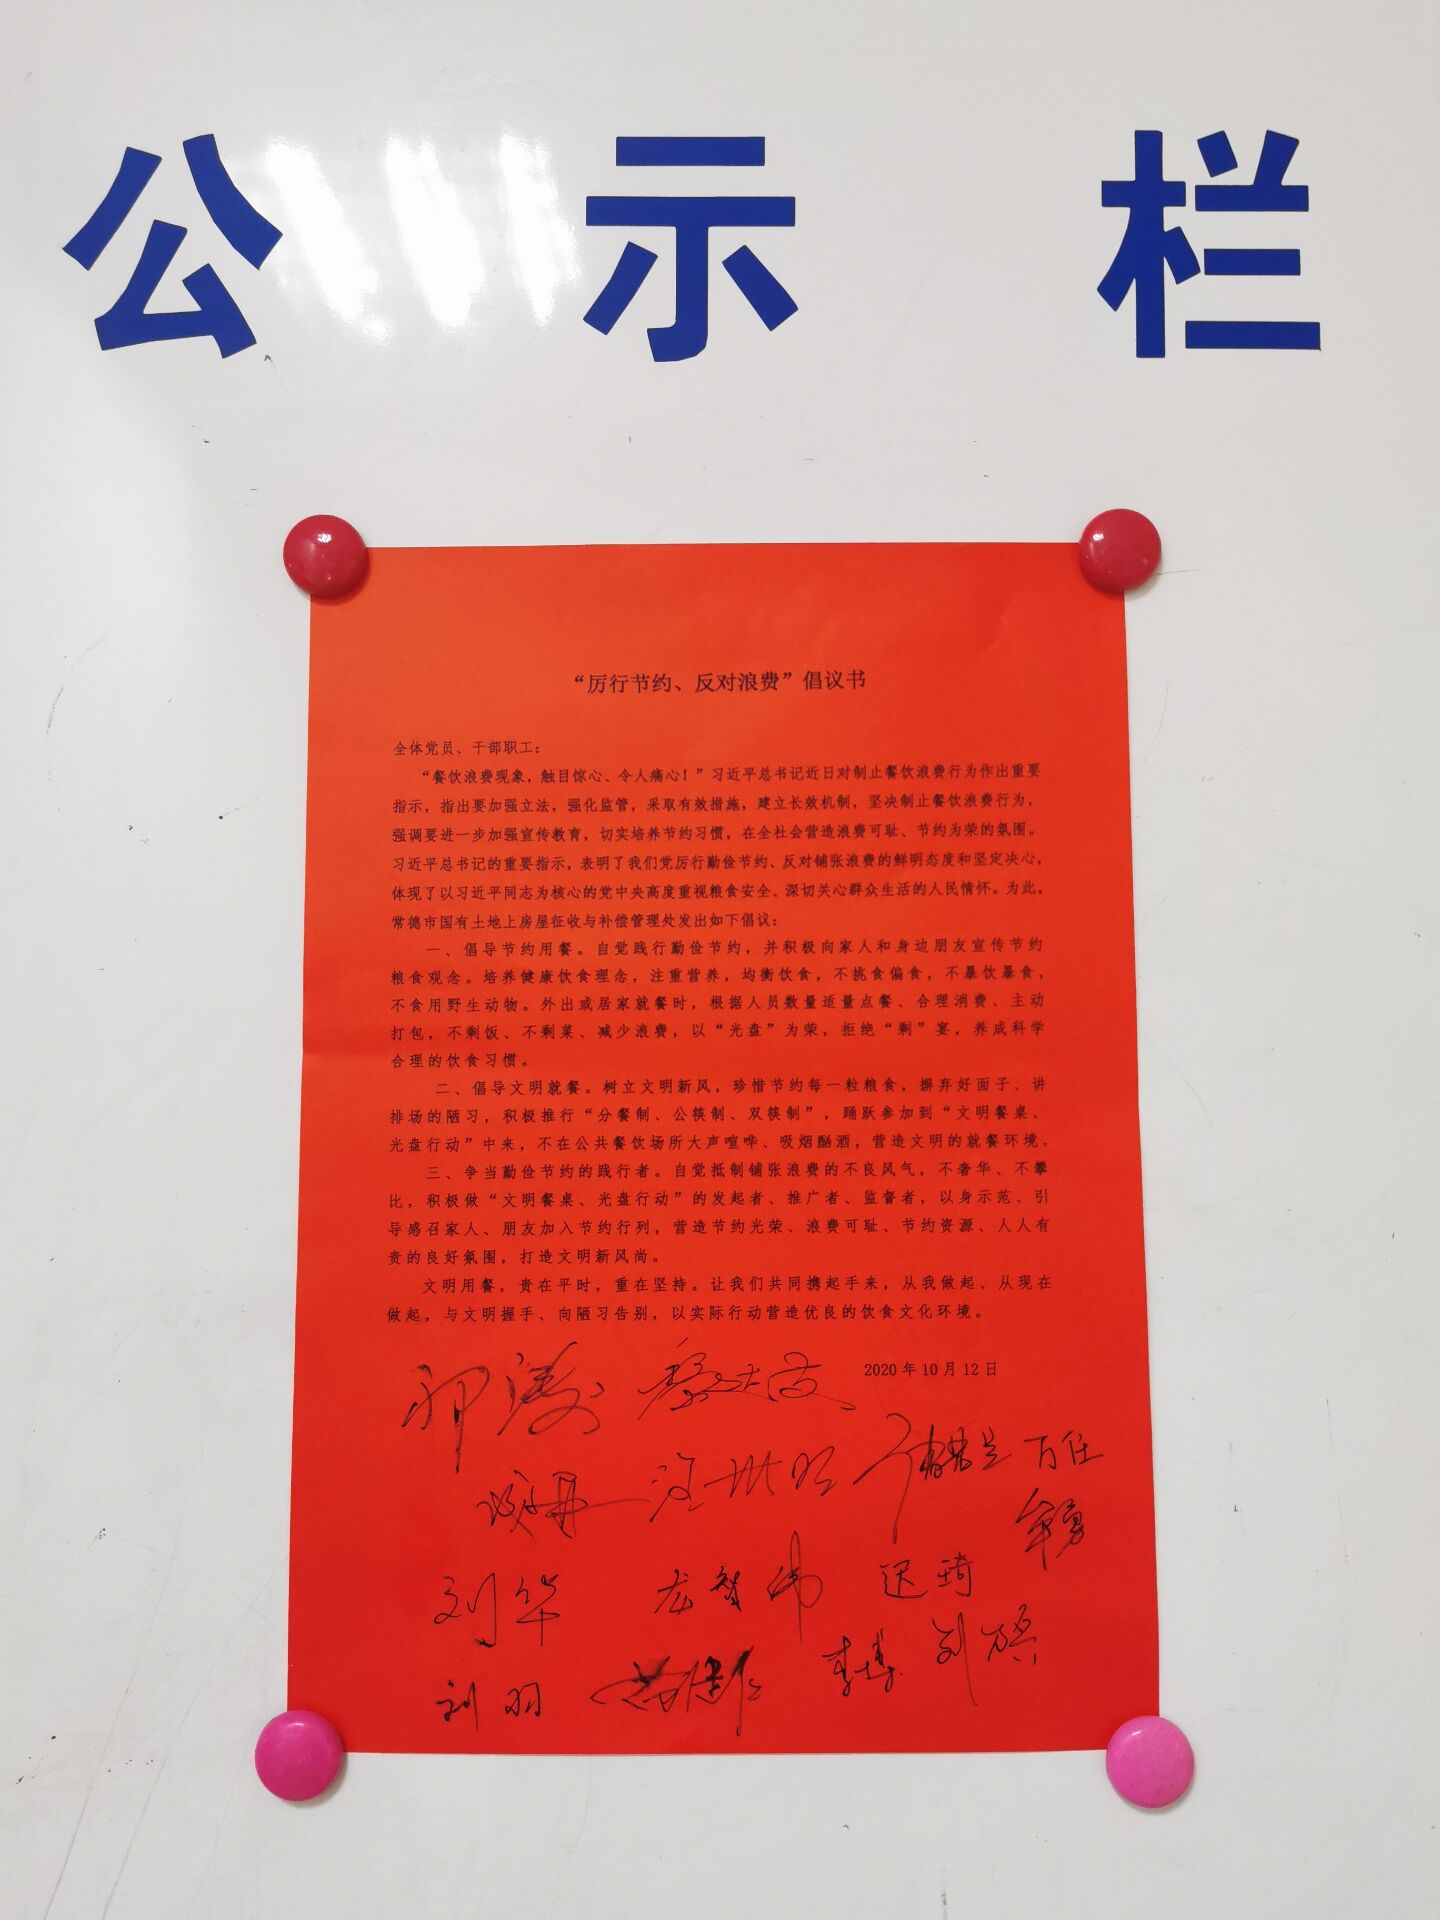 公示栏
“厉行节约、反对浪费”倡议书
全体党员、干部职工：
“餐饮浪费现象，触目惊心、令人痛心！”习近平总书记近日对制止餐饮浪费行为作出重要
指示，指出要加强立法，强化监管，采取有效措施，建立长效机制，坚决制止餐饮浪费行为，
强调要进一步加强宣传教育，切实培养节约习惯，在全社会营造浪费可耻、节约为荣的氛围。
习近平总书记的重要指示，表明了我们党厉行勤俭节约、反对铺张浪费的鲜明态度和坚定决心，
体现了以习近平同志为核心的党中央高度重视粮食安全、深切关心群众生活的人民情怀。为此，
常德市国有土地上房屋征收与补偿管理处发出如下倡议：
一、倡导节约用餐。自觉践行勤俭节约，并积极向家人和身边朋友宣传节约
粮食观念。培养健康饮食理念，注重营养，均衡饮食，不挑食偏食，不暴饮暴食，
不食用野生动物。外出或居家就餐时，根据人员数量适量点餐、合理消费、主动
打包，不剩饭、不剩菜、减少浪费，以“光盘”为荣，拒绝“剩”宴，养成科学
合理的饮食习惯。
二、倡导文明就餐。树立文明新风，珍惜节约每一粒粮食，摒弃好面子、讲
排场的陋习，积极推行“分餐制、公筷制、双筷制”，踊跃参加到“文明餐桌、
光盘行动”中来，不在公共餐饮场所大声喧哗、吸烟酗酒，营造文明的就餐环境。
三、争当勤俭节约的践行者。自觉抵制铺张浪费的不良风气，不奢华、不攀
比，积极做“文明餐桌、光盘行动”的发起者、推广者、监督者，以身示范、引
导感召家人、朋友加入节约行列，营造节约光荣、浪费可耻、节约资源、人人有
责的良好氛围，打造文明新风尚。
文明用餐，贵在平时，重在坚持。让我们共同携起手来，从我做起、从现在
做起，与文明握手、向陋习告别，以实际行动营造优良的饮食文化环境。
2020年10月12日
万任
刘华 龙智伟 迟琦
刘羽 李博